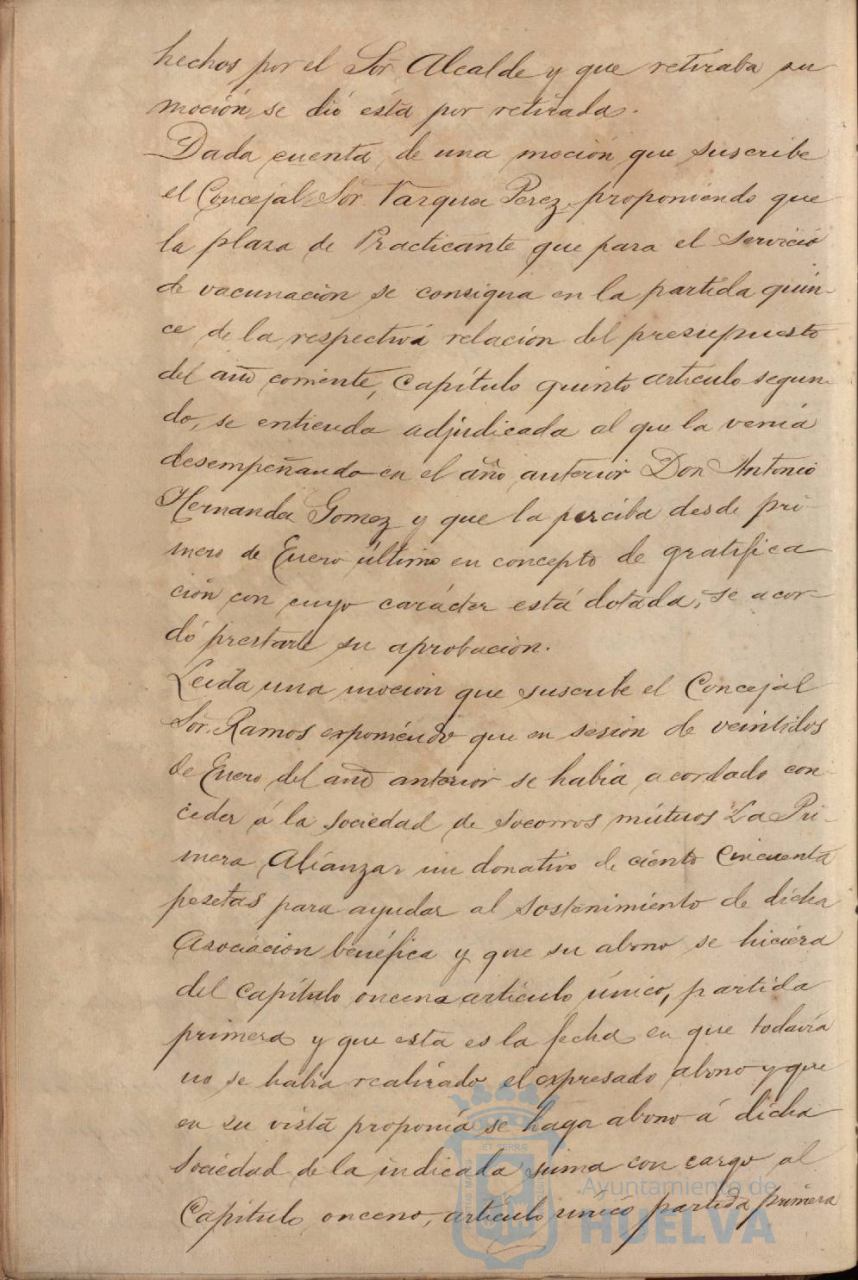 hechos por el Sor. Alcalde y que retiraba su
moción, se dió ésta por retirada.
Dada cuenta de una moción que suscribe
el Concejal Sor. Vazquez Perez proponiendo que
la plaza de Practicante que para el servicio
de vacunación se consigna en la partida quin-
ce de la respectiva relación del presupuesto
del año corriente, Capítulo quinto artículo segun-
do, se entienda adjudicada al que la venía
desempeñando en el año anterior Don Antonio
Hernandez Gomez y que la perciba desde pri-
mero de Enero último en concepto de gratifica-
ción con cuyo carácter está dotada, se acor-
dó prestarle su aprobación.
Leida una moción que suscribe el Concejal
Sor. Ramos exponiendo que en sesión de veintidos
de Enero del año anterior se había acordado con-
ceder á la sociedad de socorros mútuos La Pri-
mera Alianza un donativo de ciento cincuenta
pesetas para ayudar al sostenimiento de dicha
Asociación benéfica y que su abono se hiciera
del Capítulo onceno artículo único, partida
primera y que esta es la fecha en que todavía
no se había realizado el expresado abono y que
en su vista proponía se haga abono á dicha
Sociedad de la indicada suma con cargo al
Capítulo onceno, artículo único partida primera
Ayuntamiento de
HUELVA